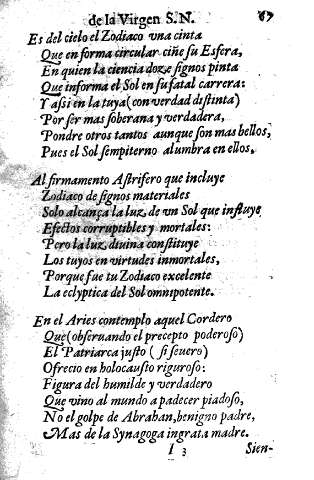 de la Virgen S. N. 67
Es del cielo el Zodiaco vna cinta
Que en forma circular ciñe su Esfera,
En quien la ciencia doze signos pinta
Que informa el Sol en su fatal carrera:
Y assi en la tuya (con verdad distinta)
Por ser mas soberana y verdadera,
Pondre otros tantos aunque son mas bellos,
Pues el Sol sempiterno alumbra en ellos.
Al firmamento Astrifero que incluye
Zodiaco de signos materiales
Solo alcança la luz de vn Sol que influye
Efectos corruptibles y mortales:
Pero la luz diuina constituye
Los tuyos en virtudes inmortales,
Porque fue tu Zodiaco excelente
La eclyptica del Sol omnipotente.
En el Aries contemplo aquel Cordero
Que (obseruando el precepto poderoso)
El Patriarca justo (si seuero)
Ofrecio en holocausto riguroso:
Figura del humilde y verdadero
Que vino al mundo a padecer piadoso,
No el golpe de Abrahan, benigno padre,
Mas de la Synagoga ingrata madre.
I 3 Sien-